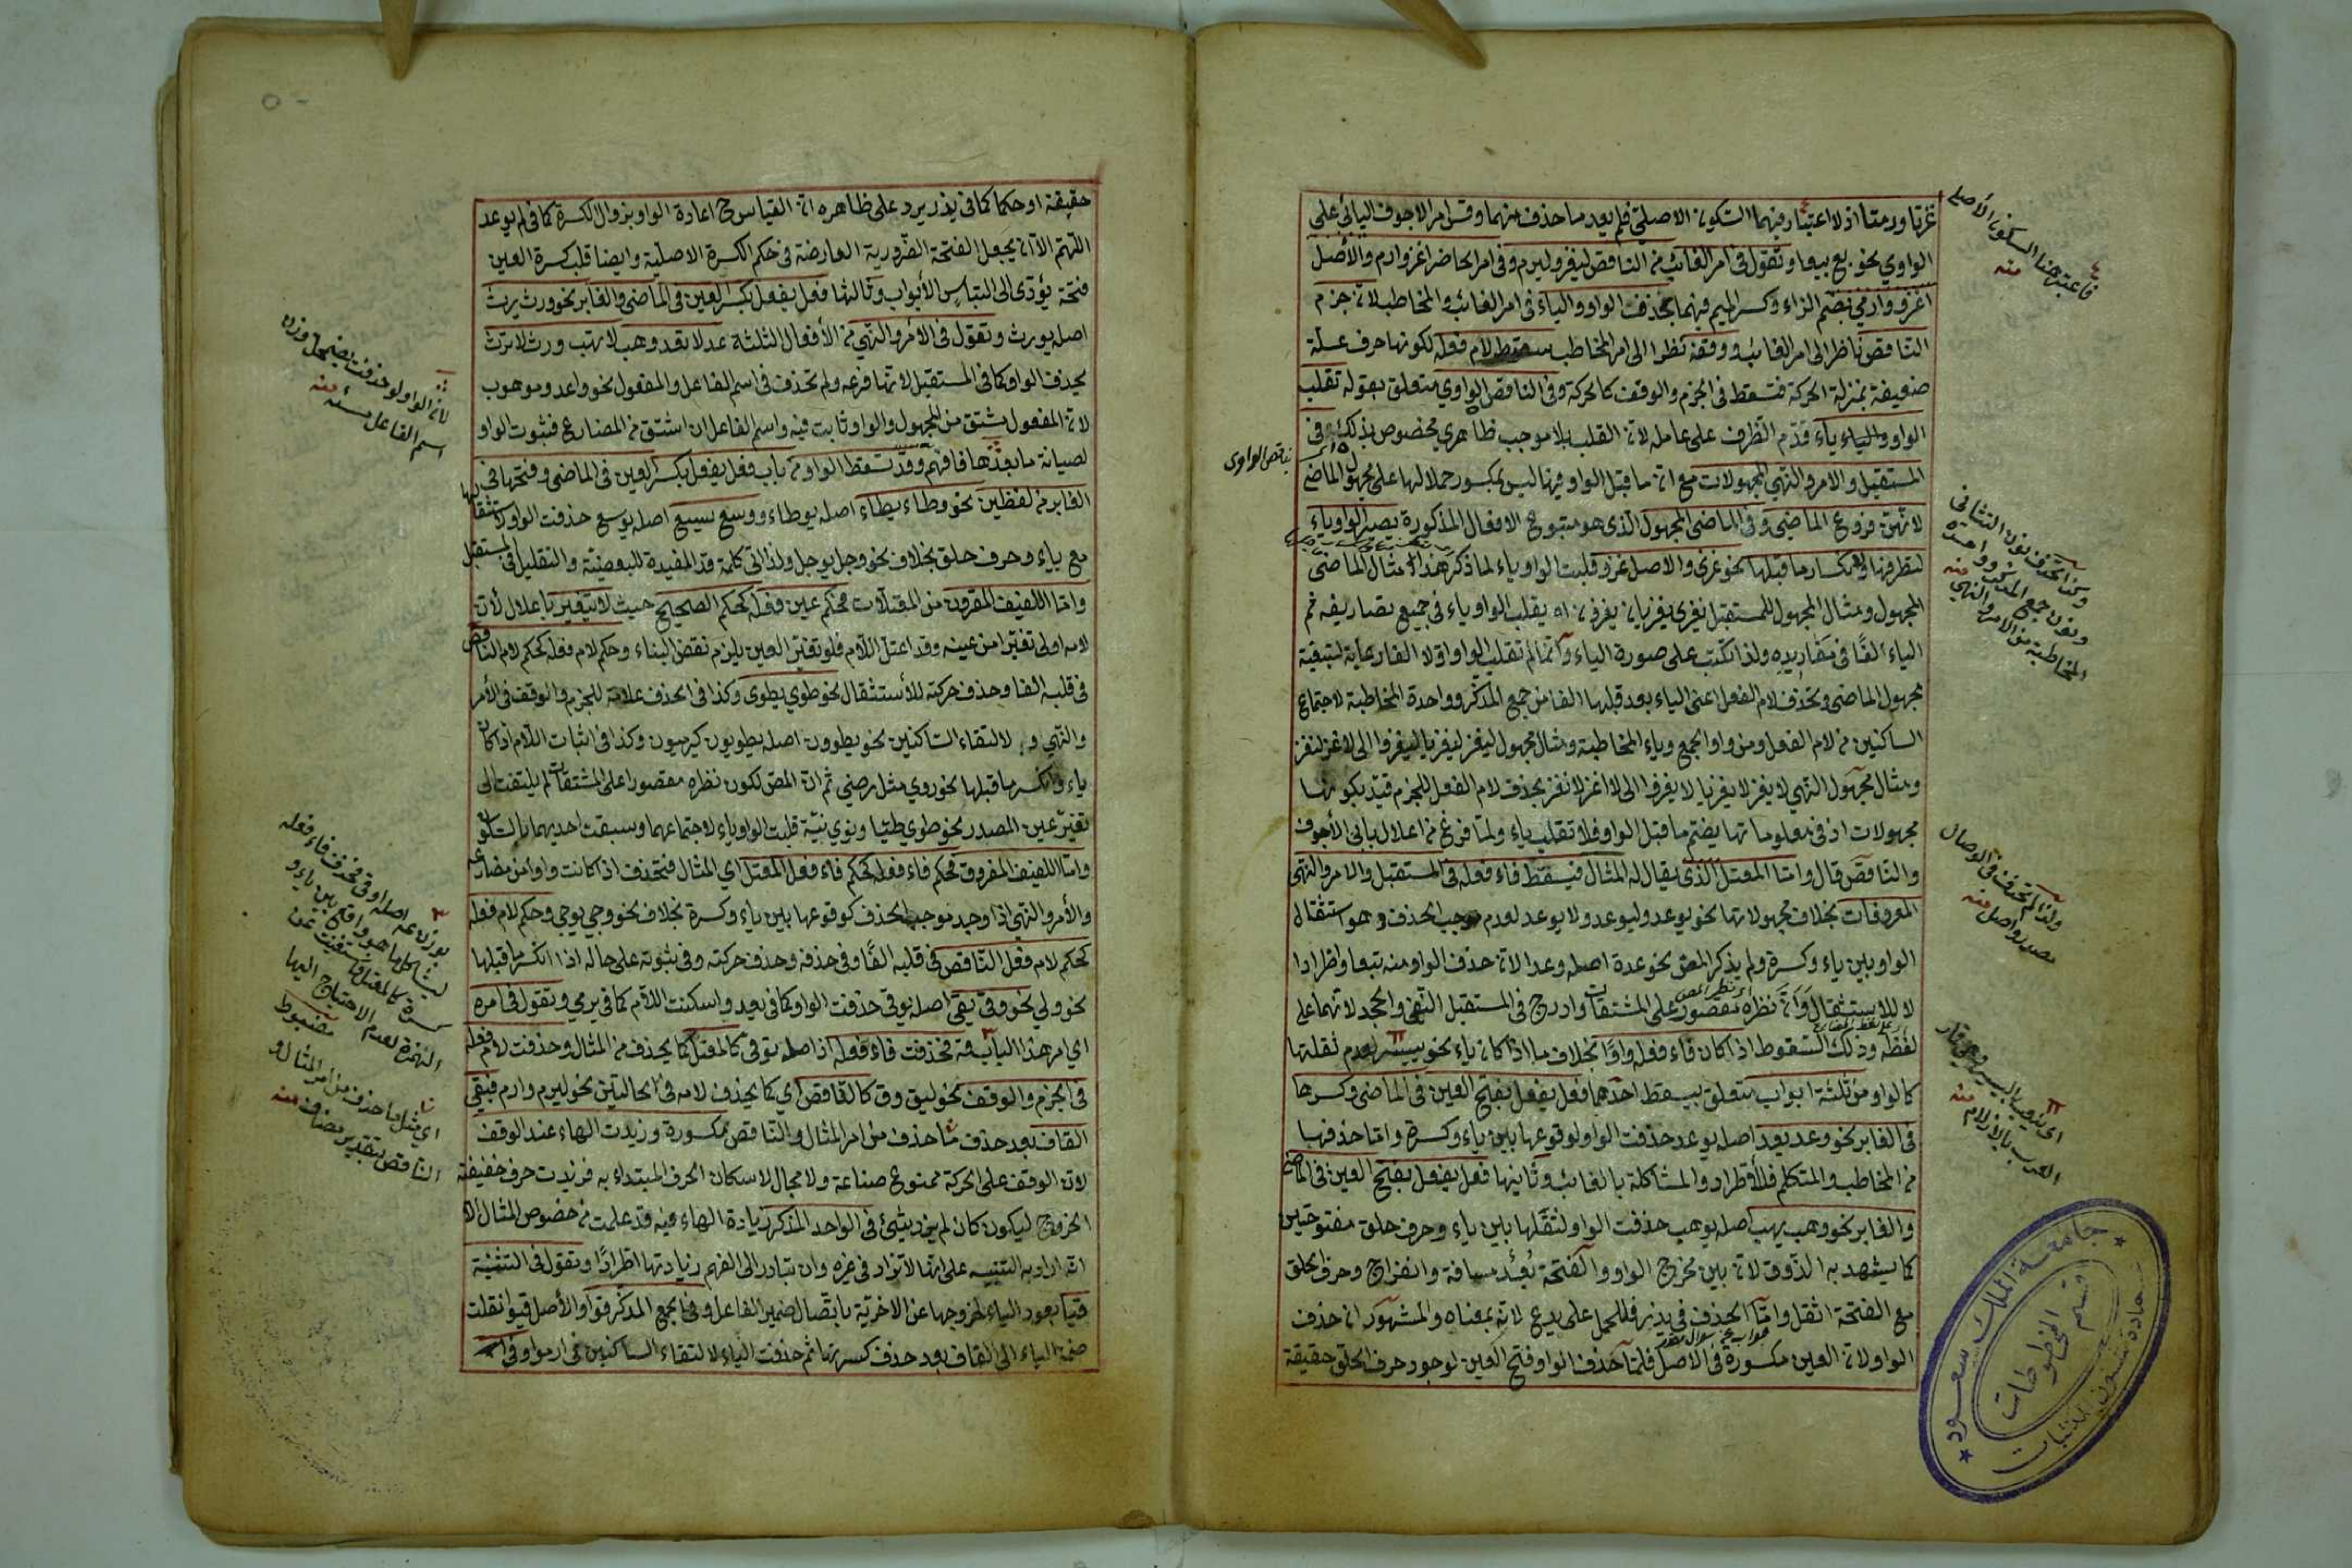 غزتا ورمتا اذ لا اعتبار فيهما السكون الاصلى فلم يعد ما حذف منهما وقس امر الاجوف اليائى على
الواوي نحو بع بيعا وتقول فى امر الغائب من الناقص ليغز وليرم وفى امر الحاضر اغز وارم والأصل
اغزو وارمي بضم الزاء وكسر الميم فيهما بحذف الواو والياء فى امر الغائب والمخاطب لان جزم
الناقص ناظرا الى امر الغائب ووقفه نظرا الى امر المخاطب سقط لام فعله لكونها حرف علة
ضعيفة بمنزلة الحركة فتسقط فى الجزم والوقف كالحركة وفى الناقص الواوي متعلق بقوله تقلب
الواو والياء ياء قدم الظرف على عامله لان القلب بلا موجب ظاهري مخصوص بذلك فى
المستقبل والامر والنهي المجهولات مع ان ما قبل الواو فيها ليس بمكسور حملا لها على مجهول الماضى
لانهن فروع الماضي وفى الماضى المجهول الذى هو متبوع الافعال المذكورة يصير الواو ياء
لتطرفها وانكسار ما قبلها نحو غزى والاصل غزو قلبت الواو ياء لما ذكر هذا مثال الماضى
المجهول ومثال المجهول للمستقبل يغزى يغزيان يغزون اه يقلب الواو ياء فى جميع تصاريفه ثم
الياء الفا فى مفاريده ولذا تكتب على صورة الياء وانما لم تقلب الواو اولا الفا رعاية لتبقية
مجهول الماضى وتحذف لام الفعل اعنى الياء بعد قلبها الفا من جمع المذكر وواحدة المخاطبة لاجتماع
الساكنين من لام الفعل ومن واو الجمع وياء المخاطبة ومثال مجهول ليغز ليغز ليغزيا ليغزوا الى لاغز لنغز
ومثال مجهول النهي لا يغز لا يغزيا لا يغزوا الى لا اغز لا نغز بحذف لام الفعل للجزم قيد بكونها
مجهولات اذ فى معلوماتها يضم ما قبل الواو فلا تقلب ياء ولما فرغ من اعلال بابى الأجوف
والناقص قال واما المعتل الذى يقال له المثال فيسقط فاء فعله فى المستقبل والامر والنهى
المعروفات بخلاف مجهولاتها نحو يوعد وليوعد ولا يوعد لعدم موجب الحذف وهو استثقال
الواو بين ياء وكسرة ولم يذكر المص نحو عدة اصله وعد الان حذف الواو منه تبعا واطرادا
لا للاستثقال وان نظره مقصور على المشتقات وادرج فى المستقبل النفى والجحد لانهما على
لفظه وذلك السقوط اذا كان فاء فعله واوا بخلاف ما اذا كان ياء نحو ييسر لعدم ثقلتها
كالواو من ثلثة ابواب متعلق بيسقط احدها فعل يفعل بفتح العين فى الماضى وكسرها
فى الغابر نحو وعد يعد اصله يوعد حذفت الواو لوقوعها بين ياء وكسرة واما حذفها
من المخاطب والمتكلم فللاطراد والمشاكلة بالغائب وثانيها فعل يفعل بفتح العين فى الماضى
والغابر نحو وهب يهب اصله يوهب حذفت الواو لثقلها بين ياء وحرف حلق مفتوحتين
كما يشهد به الذوق لان بين مخرج الواو والفتحة بُعْد مسافة وانفراج وحرف الحلق
مع الفتحة اثقل واما الحذف فى يذر فللحمل على يدع لانه بمعناه والمشهور ان حذف
الواو لان العين مكسورة فى الاصل فلما حذف الواو فتح العين لوجود حرف الحلق حقيقة
فاعتبر هنا السكون الأصلى
منه
ناقص الواوى
وكذا تحذف نون التثانى
ونون جمع المذكر وواحدة
المخاطبة من الامر والنهي
منه
ولذا لم تحذف فى الوصال
مصدر واصل منه
اى نظر المص
العرب بالازلام منه
جامعة الملك سعود
قسم المخطوطات
عمادة شئون المكتبات
حقيقة او حكما كما فى يذر يرد على ظاهره ان القياس ح اعادة الواو بزوال الكسرة كما فى لم يوعد
اللهم الا ان يجعل الفتحة الضرورية العارضة فى حكم الكسرة الاصلية وايضا قلب كسرة العين
فتحة يؤدى الى التباس الأبواب وثالثها فعل يفعل بكسر العين فى الماضى والغابر نحو ورث يرث
اصله يورث وتقول فى الامر والنهي من الأفعال الثلثة عد لا تعد وهب لا تهب ورث لا ترث
بحذف الواو كما فى المستقبل لانها فرعه ولم تحذف فى اسم الفاعل والمفعول نحو واعد وموهوب
لان المفعول مشتق من المجهول والواو ثابت فيه واسم الفاعل ان اشتق من المضارع فثبوت الواو
لصيانة ما بعدها فافهم وقد تسقط الواو من باب فعل يفعل بكسر العين فى الماضى وفتحها فى
الغابر من لفظين نحو وطاء يطاء اصله يوطاء ووسع يسيع اصله يوسع حذفت الواو لاستثقالها
مع ياء وحرف حلق بخلاف نحو وجل يوجل ولذا اتى كلمة قد المفيدة للبعضية والتقليل فى المستقبل
واما اللفيف المقرون من المعتلات فحكم عين فعله كحكم الصحيح حيث لا يتغير باعلال لأن
لامه اولى تغيرا من عينه وقد اعتل اللام فلو تغير العين يلزم نقض البناء وحكم لام فعله كحكم لام الناقص
فى قلبه الفا وحذف حركته للأستثقال نحو طوي يطوى وكذا فى الحذف علامة للجزم والوقف فى الأمر
والنهي و لالتقاء الساكنين نحو يطوون اصله يطويون كيرمون وكذا فى اثبات اللام اذا كان
ياء وانكسر ما قبلها نحو روي مثل رضي ثم ان المص لكون نظره مقصورا على المشتقات لم يلتفت الى
تغير عين المصدر نحو طوي طيا ونوي نية قلبت الواو ياء لاجتماعهما وسبقت احديهما بالسكون
واما اللفيف المفروق فحكم فاء فعله كحكم فاء فعل المعتل اي المثال فتحذف اذ كانت واوا من مضارعه
والأمر والنهي اذا وجد موجب الحذف كوقوعها بين ياء وكسرة بخلاف نحو وجي يوجي وحكم لام فعله
كحكم لام فعل الناقص فى قلبه الفا وفى حذفه وحذف حركته وفى ثبوته على حاله اذا انكسر ما قبلها
نحو ولي نحو وقى يقى اصله يوقي حذفت الواو كما فى يعد واسكنت اللام كما فى يرمي وتقول فى امره
اي امر هذا الباب قه فحذفت فاء فعله اذ اصله توقى كالمعتل كما يحذف من المثال وحذفت لام فعله
فى الجزم والوقف نحو ليق وق كالناقص اي كما يحذف لامه فى الحالتين نحو ليرم وارم فبقي
القاف بعد حذف ما حذف من امر المثال والناقص مكسورة وزيدت الهاء عند الوقف
لان الوقف على الحركة ممنوع صناعة ولا مجال لاسكان الحرف المبتداء به فزيدت حرف خفيفة
الخروج ليكون كان لم يزد بشئ فى الواحد المذكر زيادة الهاء فيه قد علمت من خصوص المثال الا
انه اراد به التنبيه على انها لا تزاد فى غيره وان يتبادر الى الفهم زيادتها اطرادا وتقول فى التثنية
قيا بعود الياء لخروجها عن الاخرية باتصال ضمير الفاعل وفى الجمع المذكر قوا والأصل قيوا نقلت
ضمة الياء الى القاف بعد حذف كسرتها ثم حذفت الياء لالتقاء الساكنين فى ارموا وفى
لان الواو لو حذفت يصير على وزن
اسم الفاعل منه
ليشاكل ما هو واقع بين ياء و
كسرة كالمعتل فاستغنيت عن
الهمزة لعدم الاحتياج اليها
مضبوط
اي مثل ما حذف من امر المثال و
الناقص بتقدير مضاف منه